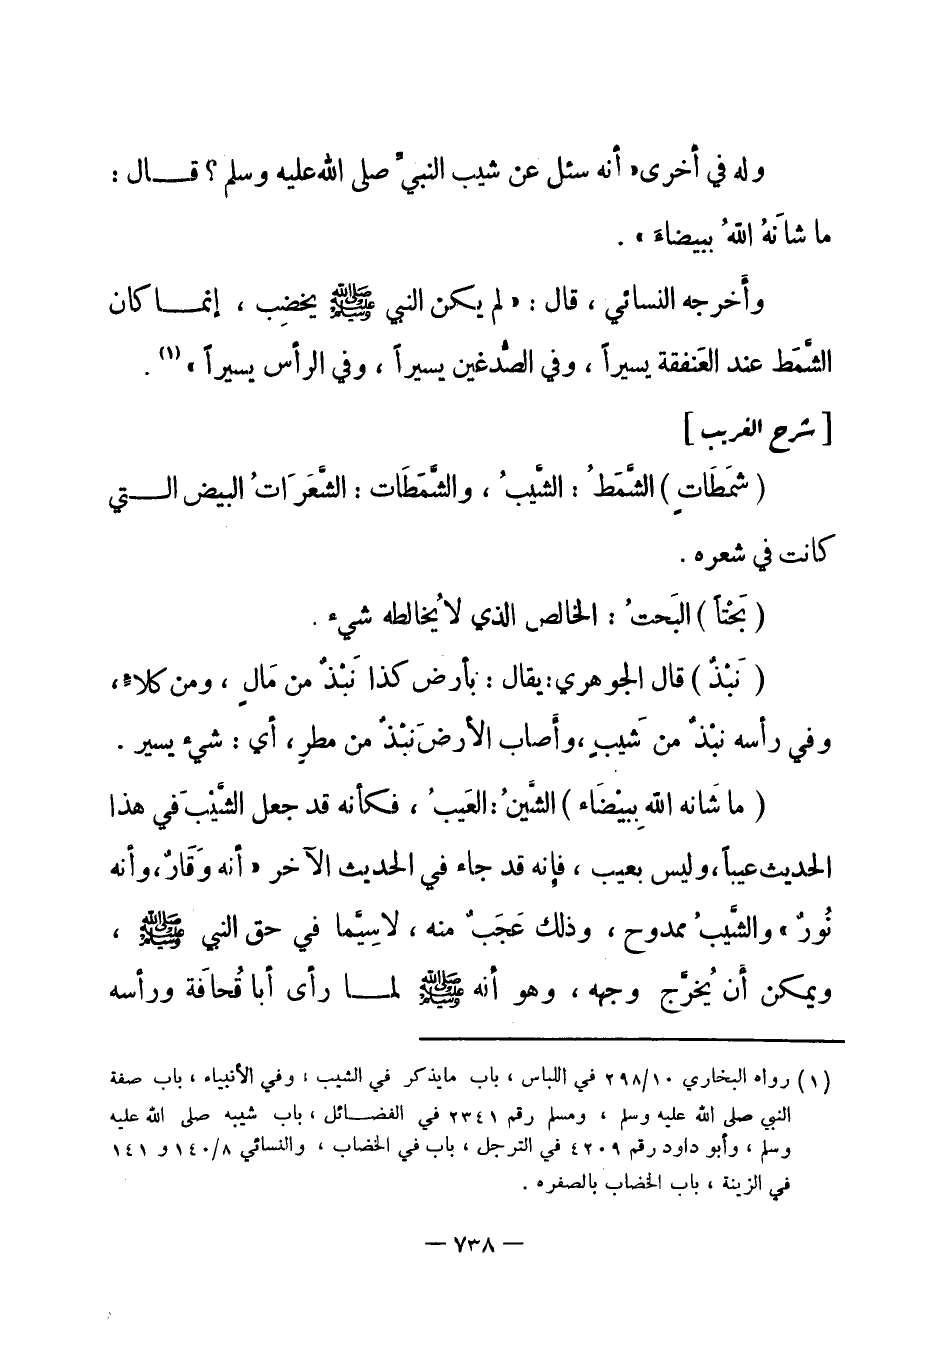 وله في أخرى « أنه سئل عن شيب النبيِّ صلى الله عليه وسلم ؟ قـــال :
ما شانَهُ اللهُ ببيضاءَ » .
وأخرجه النسائي ، قال : « لم يكن النبي ﷺ يخضِب ، إنمـــا كان
الشَّمَط عند العَنفقة يسيراً ، وفي الصُّدغين يسيراً ، وفي الرأس يسيراً » (١) .
[ شرح الغريب ]
( شمَطَاتٍ ) الشَّمَطُ : الشَّيبُ ، والشَّمَطَات : الشَّعَرَاتُ البيض الـــتي
كانت في شعره .
( بَحْتاً ) البَحتُ : الخالص الذي لا يُخالطه شيء .
( نَبْذٌ ) قال الجوهري : يقال : بأرض كذا نَبْذٌ من مَالٍ ، ومن كلاءٍ ،
وفي رأسه نبْذٌ من شَيبٍ ، وأَصاب الأرضَ نَبْذٌ من مطرٍ ، أي : شيء يسير .
( ما شَانه الله بِبيْضَاء ) الشَّينُ : العَيبُ ، فكأنه قد جعل الشَّيْبَ في هذا
الحديث عيباً ، وليس بعيب ، فإنه قد جاء في الحديث الآخر « أنه وَقَارٌ ، وأنه
نُورٌ » والشَّيبُ ممدوح ، وذلك عَجَبٌ منه ، لا سِيَّما في حق النبي ﷺ ،
ويمكن أَن يُخرَّج وجهه ، وهو أنه ﷺ لمـــا رأى أبا قُحافَة ورأسه
(١) رواه البخاري ٢٩٨/١٠ في اللباس ، باب مايذكر في الشيب ، وفي الأنبياء ، باب صفة
النبي صلى الله عليه وسلم ، ومسلم رقم ٢٣٤١ في الفضـــائل ، باب شيبه صلى الله عليه
وسلم ، وأبو داود رقم ٤٢٠٩ في الترجل ، باب في الخضاب ، والنسائي ١٤٠/٨ و ١٤١
في الزينة ، باب الخضاب بالصفره .
— ٧٣٨ —